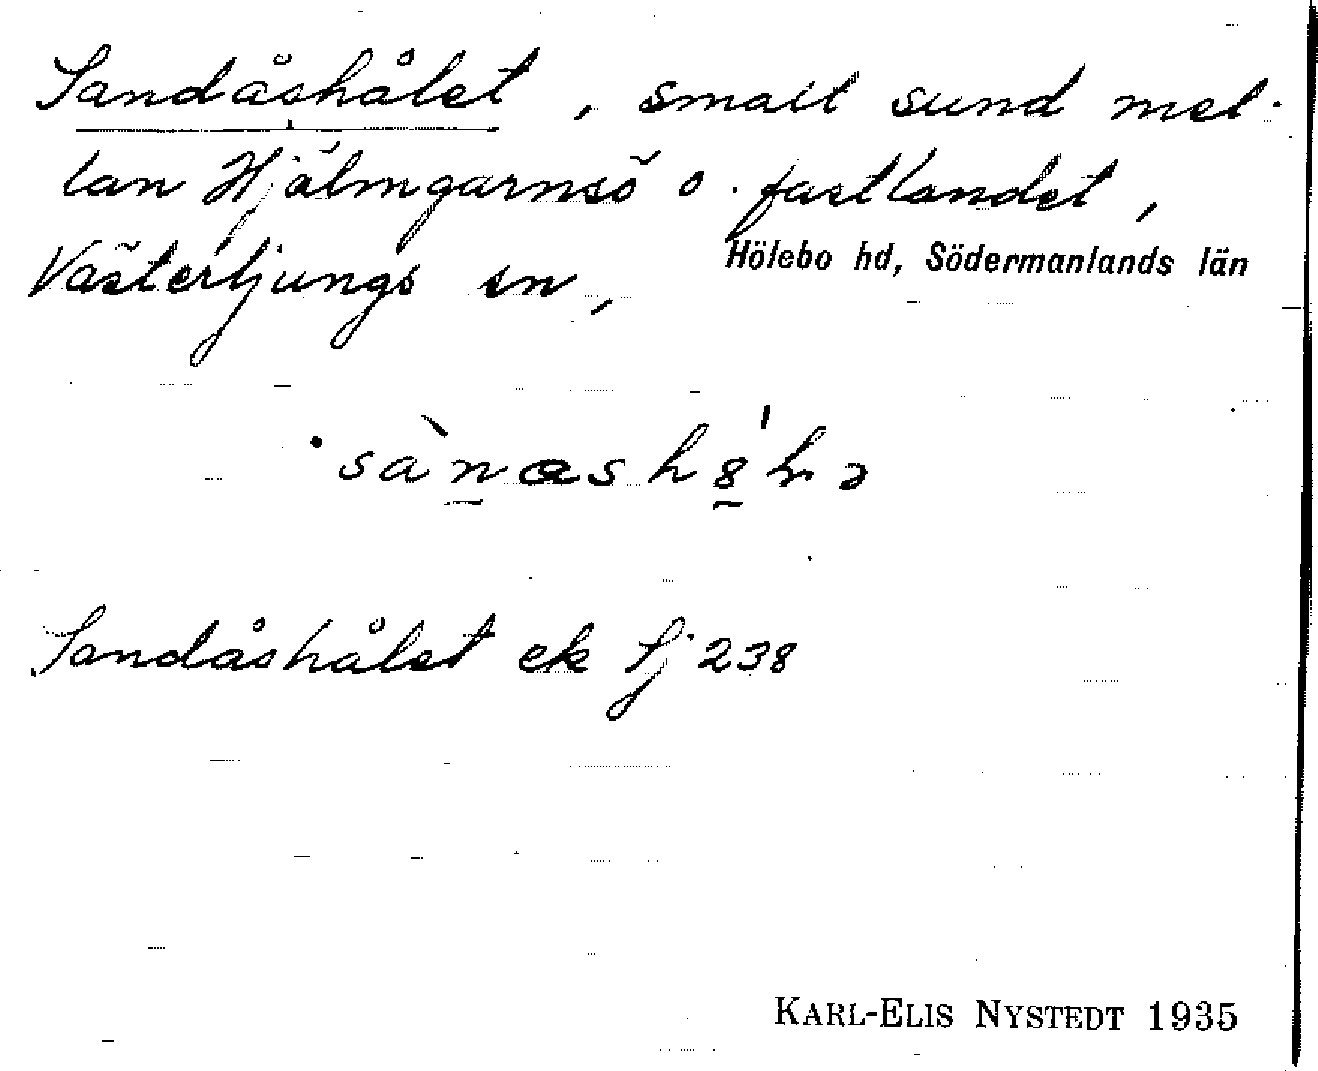 Sandåshålet, smalt sund mel-
lan Hjälmgarnsö o. fastlandet,
Västerljungs sn, Hölebo hd, Södermanlands län
Sandåshålet ek fj 238
KARL-ELIS NYSTEDT 1935